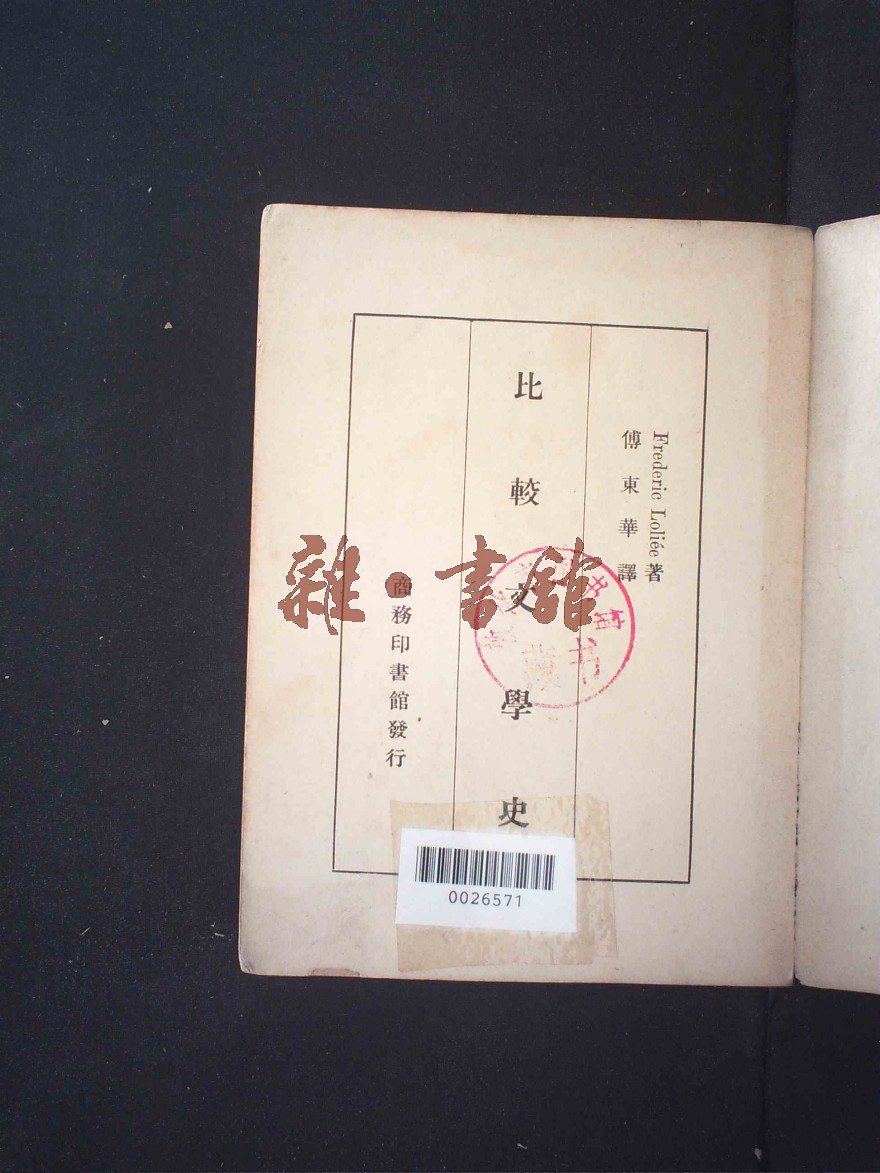 Frederic Loliée 著
傅東華譯
比較文學史
商務印書館發行
雜·書館
0026571